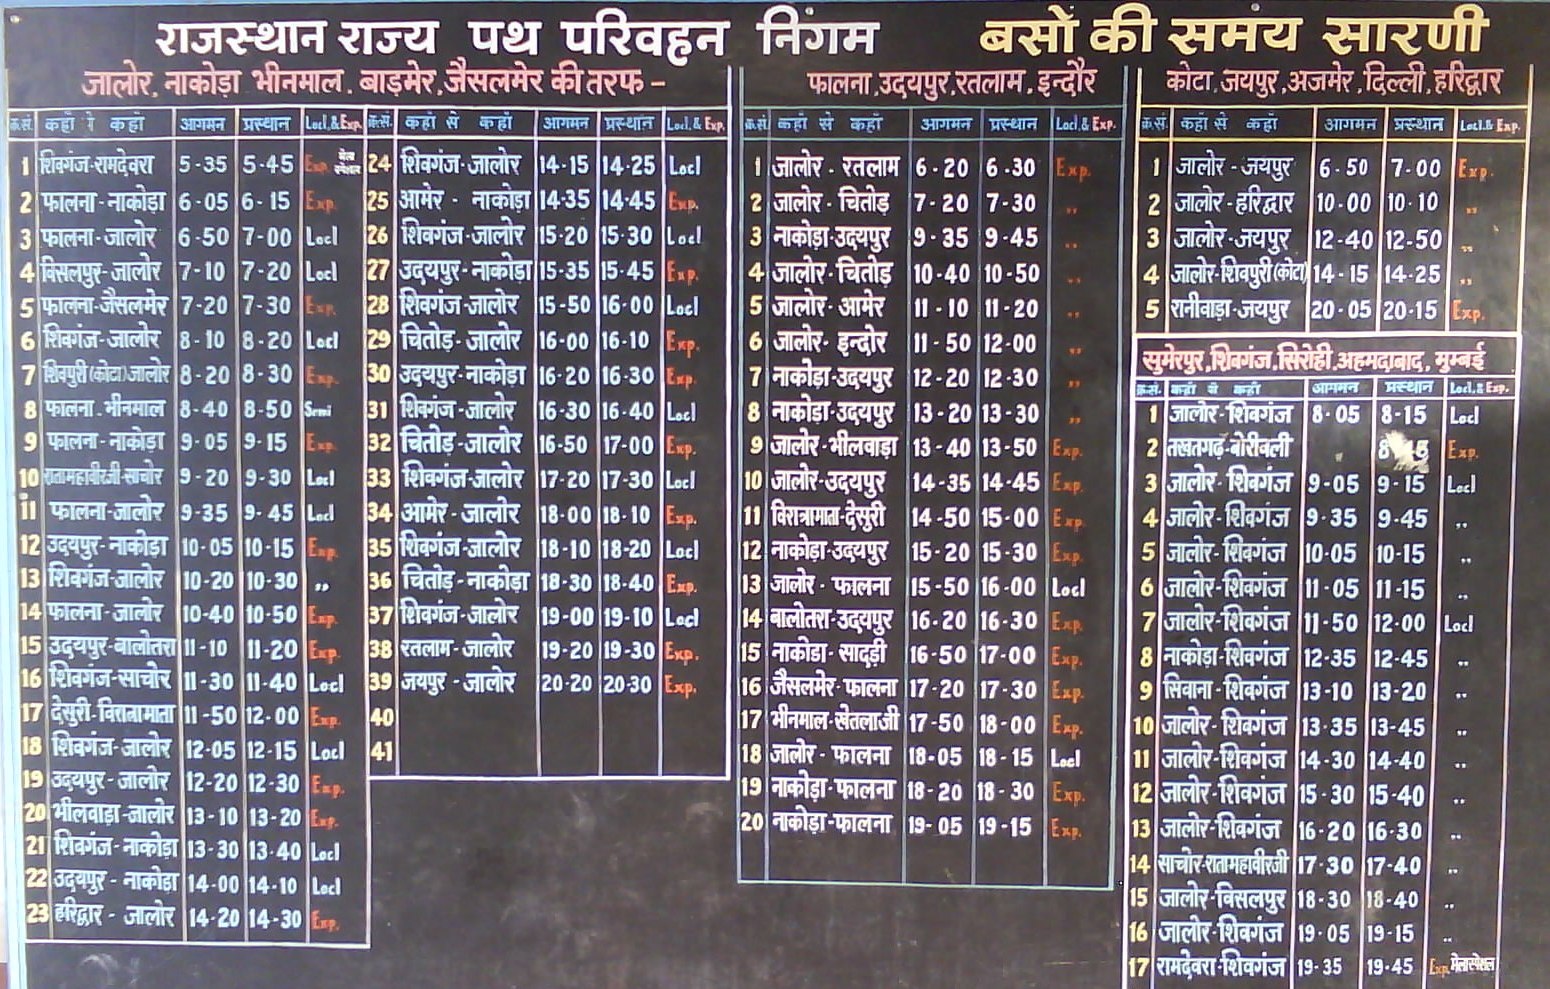 राजस्थान राज्य पथ परिवहन निगम बसों की समय सारणी
जालोर, नाकोड़ा भीनमाल, बाड़मेर, जैसलमेर की तरफ -
क्र.सं. कहाँ से कहाँ आगमन प्रस्थान Locl.& Exp.
1 शिवगंज-रामदेवरा 5-35 5-45 Exp. मेला स्पेशल
2 फालना-नाकोड़ा 6-05 6-15 Exp.
3 फालना-जालोर 6-50 7-00 Locl
4 विसलपुर-जालोर 7-10 7-20 Locl
5 फालना-जैसलमेर 7-20 7-30 Exp.
6 शिवगंज-जालोर 8-10 8-20 Locl
7 शिवपुरी (कोटा) जालोर 8-20 8-30 Exp.
8 फालना-भीनमाल 8-40 8-50 Semi
9 फालना-नाकोडा 9-05 9-15 Exp.
10 रातामहावीरजी-साचोर 9-20 9-30 Locl
11 फालना-जालोर 9-35 9-45 Locl
12 उदयपुर-नाकोड़ा 10-05 10-15 Exp.
13 शिवगंज-जालोर 10-20 10-30 ,,
14 फालना-जालोर 10-40 10-50 Exp.
15 उदयपुर-बालोतरा 11-10 11-20 Exp.
16 शिवगंज-साचोर 11-30 11-40 Locl
17 देसुरी-विरात्रामाता 11-50 12-00 Exp.
18 शिवगंज-जालोर 12-05 12-15 Locl
19 उदयपुर-जालोर 12-20 12-30 Exp.
20 भीलवाड़ा-जालोर 13-10 13-20 Exp.
21 शिवगंज-नाकोड़ा 13-30 13-40 Locl
22 उदयपुर-नाकोड़ा 14-00 14-10 Locl
23 हरिद्वार - जालोर 14-20 14-30 Exp.
क्र.सं. कहाँ से कहाँ आगमन प्रस्थान Locl.& Exp.
24 शिवगंज-जालोर 14-15 14-25 Locl
25 आमेर - नाकोड़ा 14-35 14-45 Exp.
26 शिवगंज-जालोर 15-20 15-30 Locl
27 उदयपुर-नाकोडा 15-35 15-45 Exp.
28 शिवगंज-जालोर 15-50 16-00 Locl
29 चितोड़-जालोर 16-00 16-10 Exp.
30 उदयपुर-नाकोड़ा 16-20 16-30 Exp.
31 शिवगंज-जालोर 16-30 16-40 Locl
32 चितोड़-जालोर 16-50 17-00 Exp.
33 शिवगंज-जालोर 17-20 17-30 Locl
34 आमेर-जालोर 18-00 18-10 Exp.
35 शिवगंज-जालोर 18-10 18-20 Locl
36 चितोड़-नाकोड़ा 18-30 18-40 Exp.
37 शिवगंज-जालोर 19-00 19-10 Locl
38 रतलाम-जालोर 19-20 19-30 Exp.
39 जयपुर - जालोर 20-20 20-30 Exp.
40
41
फालना, उदयपुर, रतलाम, इन्दौर
क्र.सं. कहाँ से कहाँ आगमन प्रस्थान Locl.& Exp.
1 जालोर - रतलाम 6-20 6-30 Exp.
2 जालोर - चितोड़ 7-20 7-30 ,,
3 नाकोड़ा-उदयपुर 9-35 9-45 ,,
4 जालोर-चितोड़ 10-40 10-50 ,,
5 जालोर-आमेर 11-10 11-20 ,,
6 जालोर-इन्दोर 11-50 12-00 ,,
7 नाकोडा-उदयपुर 12-20 12-30 ,,
8 नाकोडा-उदयपुर 13-20 13-30 ,,
9 जालोर-भीलवाड़ा 13-40 13-50 Exp.
10 जालोर-उदयपुर 14-35 14-45 Exp.
11 विरात्रामाता-देसुरी 14-50 15-00 Exp.
12 नाकोड़ा-उदयपुर 15-20 15-30 Exp.
13 जालोर - फालना 15-50 16-00 Locl
14 बालोतरा-उदयपुर 16-20 16-30 Exp.
15 नाकोडा-सादड़ी 16-50 17-00 Exp.
16 जैसलमेर-फालना 17-20 17-30 Exp.
17 भीनमाल-खेतलाजी 17-50 18-00 Exp.
18 जालोर - फालना 18-05 18-15 Locl
19 नाकोड़ा-फालना 18-20 18-30 Exp.
20 नाकोड़ा-फालना 19-05 19-15 Exp.
कोटा, जयपुर, अजमेर, दिल्ली, हरिद्वार
क्र.सं. कहाँ से कहाँ आगमन प्रस्थान Locl.& Exp.
1 जालोर-जयपुर 6-50 7-00 Exp.
2 जालोर-हरिद्वार 10-00 10-10 ,,
3 जालोर-जयपुर 12-40 12-50 ,,
4 जालोर-शिवपुरी(कोटा) 14-15 14-25 ,,
5 रानीवाड़ा-जयपुर 20-05 20-15 Exp.
सुमेरपुर, शिवगंज, सिरोही, अहमदाबाद, मुम्बई
क्र.सं. कहाँ से कहाँ आगमन प्रस्थान Locl.& Exp.
1 जालोर-शिवगंज 8-05 8-15 Locl
2 तखतगढ़-बोरीवली Exp.
3 जालोर-शिवगंज 9-05 9-15 Locl
4 जालोर-शिवगंज 9-35 9-45 ,,
5 जालोर-शिवगंज 10-05 10-15 ,,
6 जालोर-शिवगंज 11-05 11-15 ,,
7 जालोर-शिवगंज 11-50 12-00 Locl
8 नाकोड़ा-शिवगंज 12-35 12-45 ,,
9 सिवाना-शिवगंज 13-10 13-20 ,,
10 जालोर-शिवगंज 13-35 13-45 ,,
11 जालोर-शिवगंज 14-30 14-40 ,,
12 जालोर-शिवगंज 15-30 15-40 ,,
13 जालोर-शिवगंज 16-20 16-30 ,,
14 साचोर-रातामहावीरजी 17-30 17-40 ,,
15 जालोर-विसलपुर 18-30 18-40 ,,
16 जालोर-शिवगंज 19-05 19-15 ,,
17 रामदेवरा-शिवगंज 19-35 19-45 Exp. मेला स्पेशल